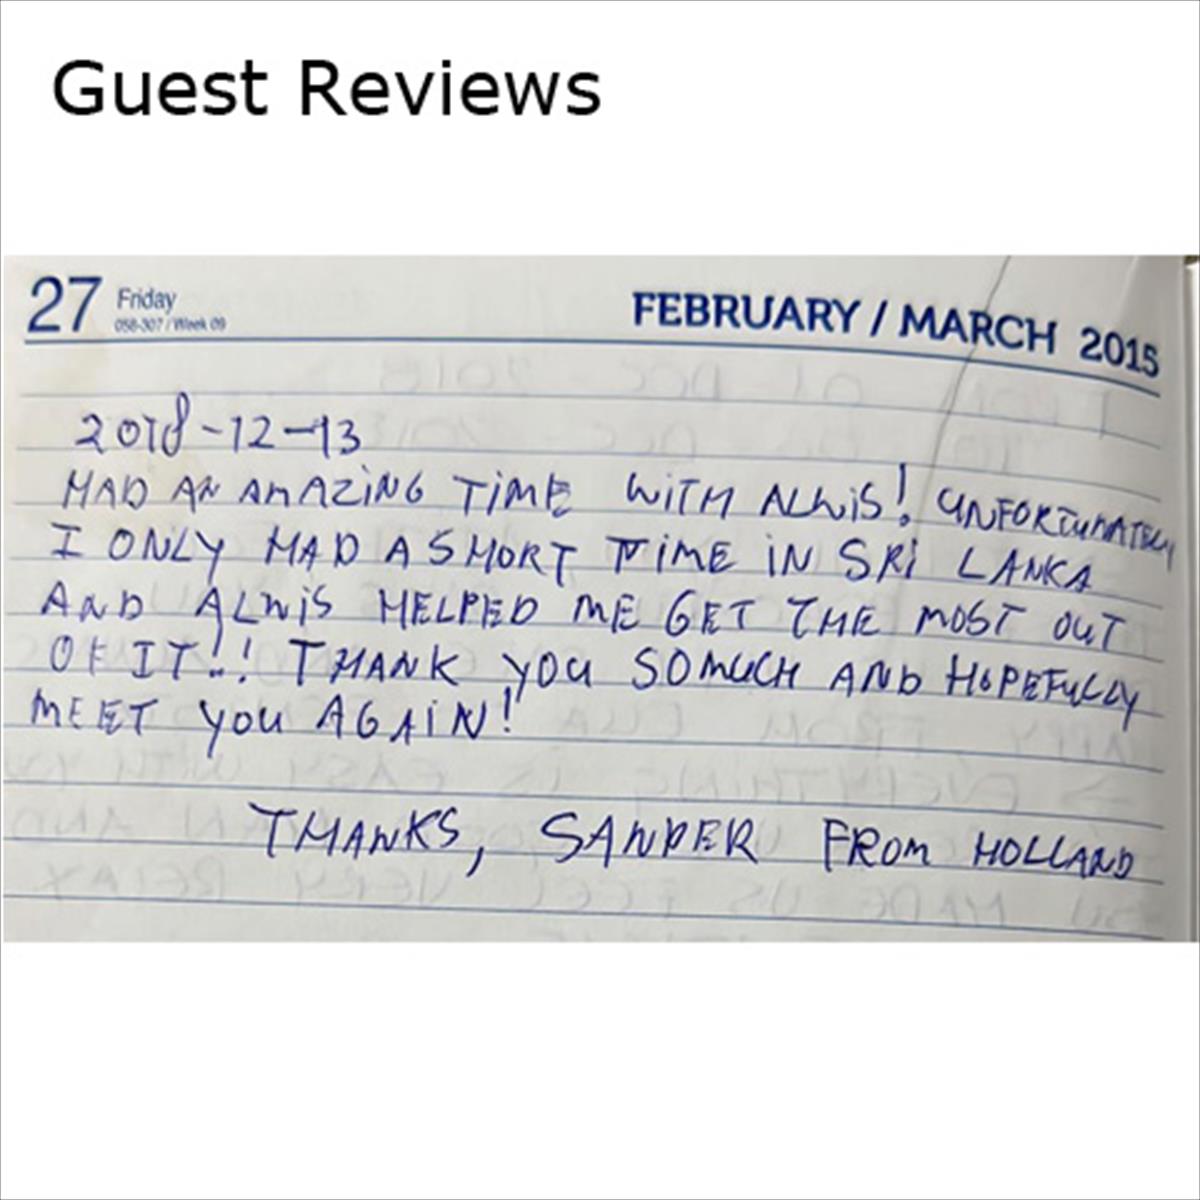 Guest Reviews
27 Friday
058-307 / Week 09
FEBRUARY / MARCH 2015
2018-12-13
HAD AN AMAZING TIME WITH ALWIS! UNFORTUNATELY
I ONLY HAD A SHORT TIME IN SRI LANKA
AND ALWIS HELPED ME GET THE MOST OUT
OF IT!! THANK YOU SO MUCH AND HOPEFULLY
MEET YOU AGAIN!
THANKS, SANDER FROM HOLLAND